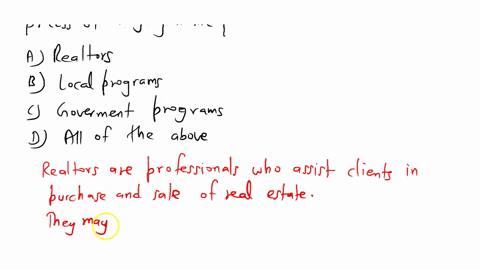 A) Realtors
B) Local programs
C) Goverment programs
D) All of the above
Realtors are professionals who assist clients in
purchase and sale of real estate.
They may